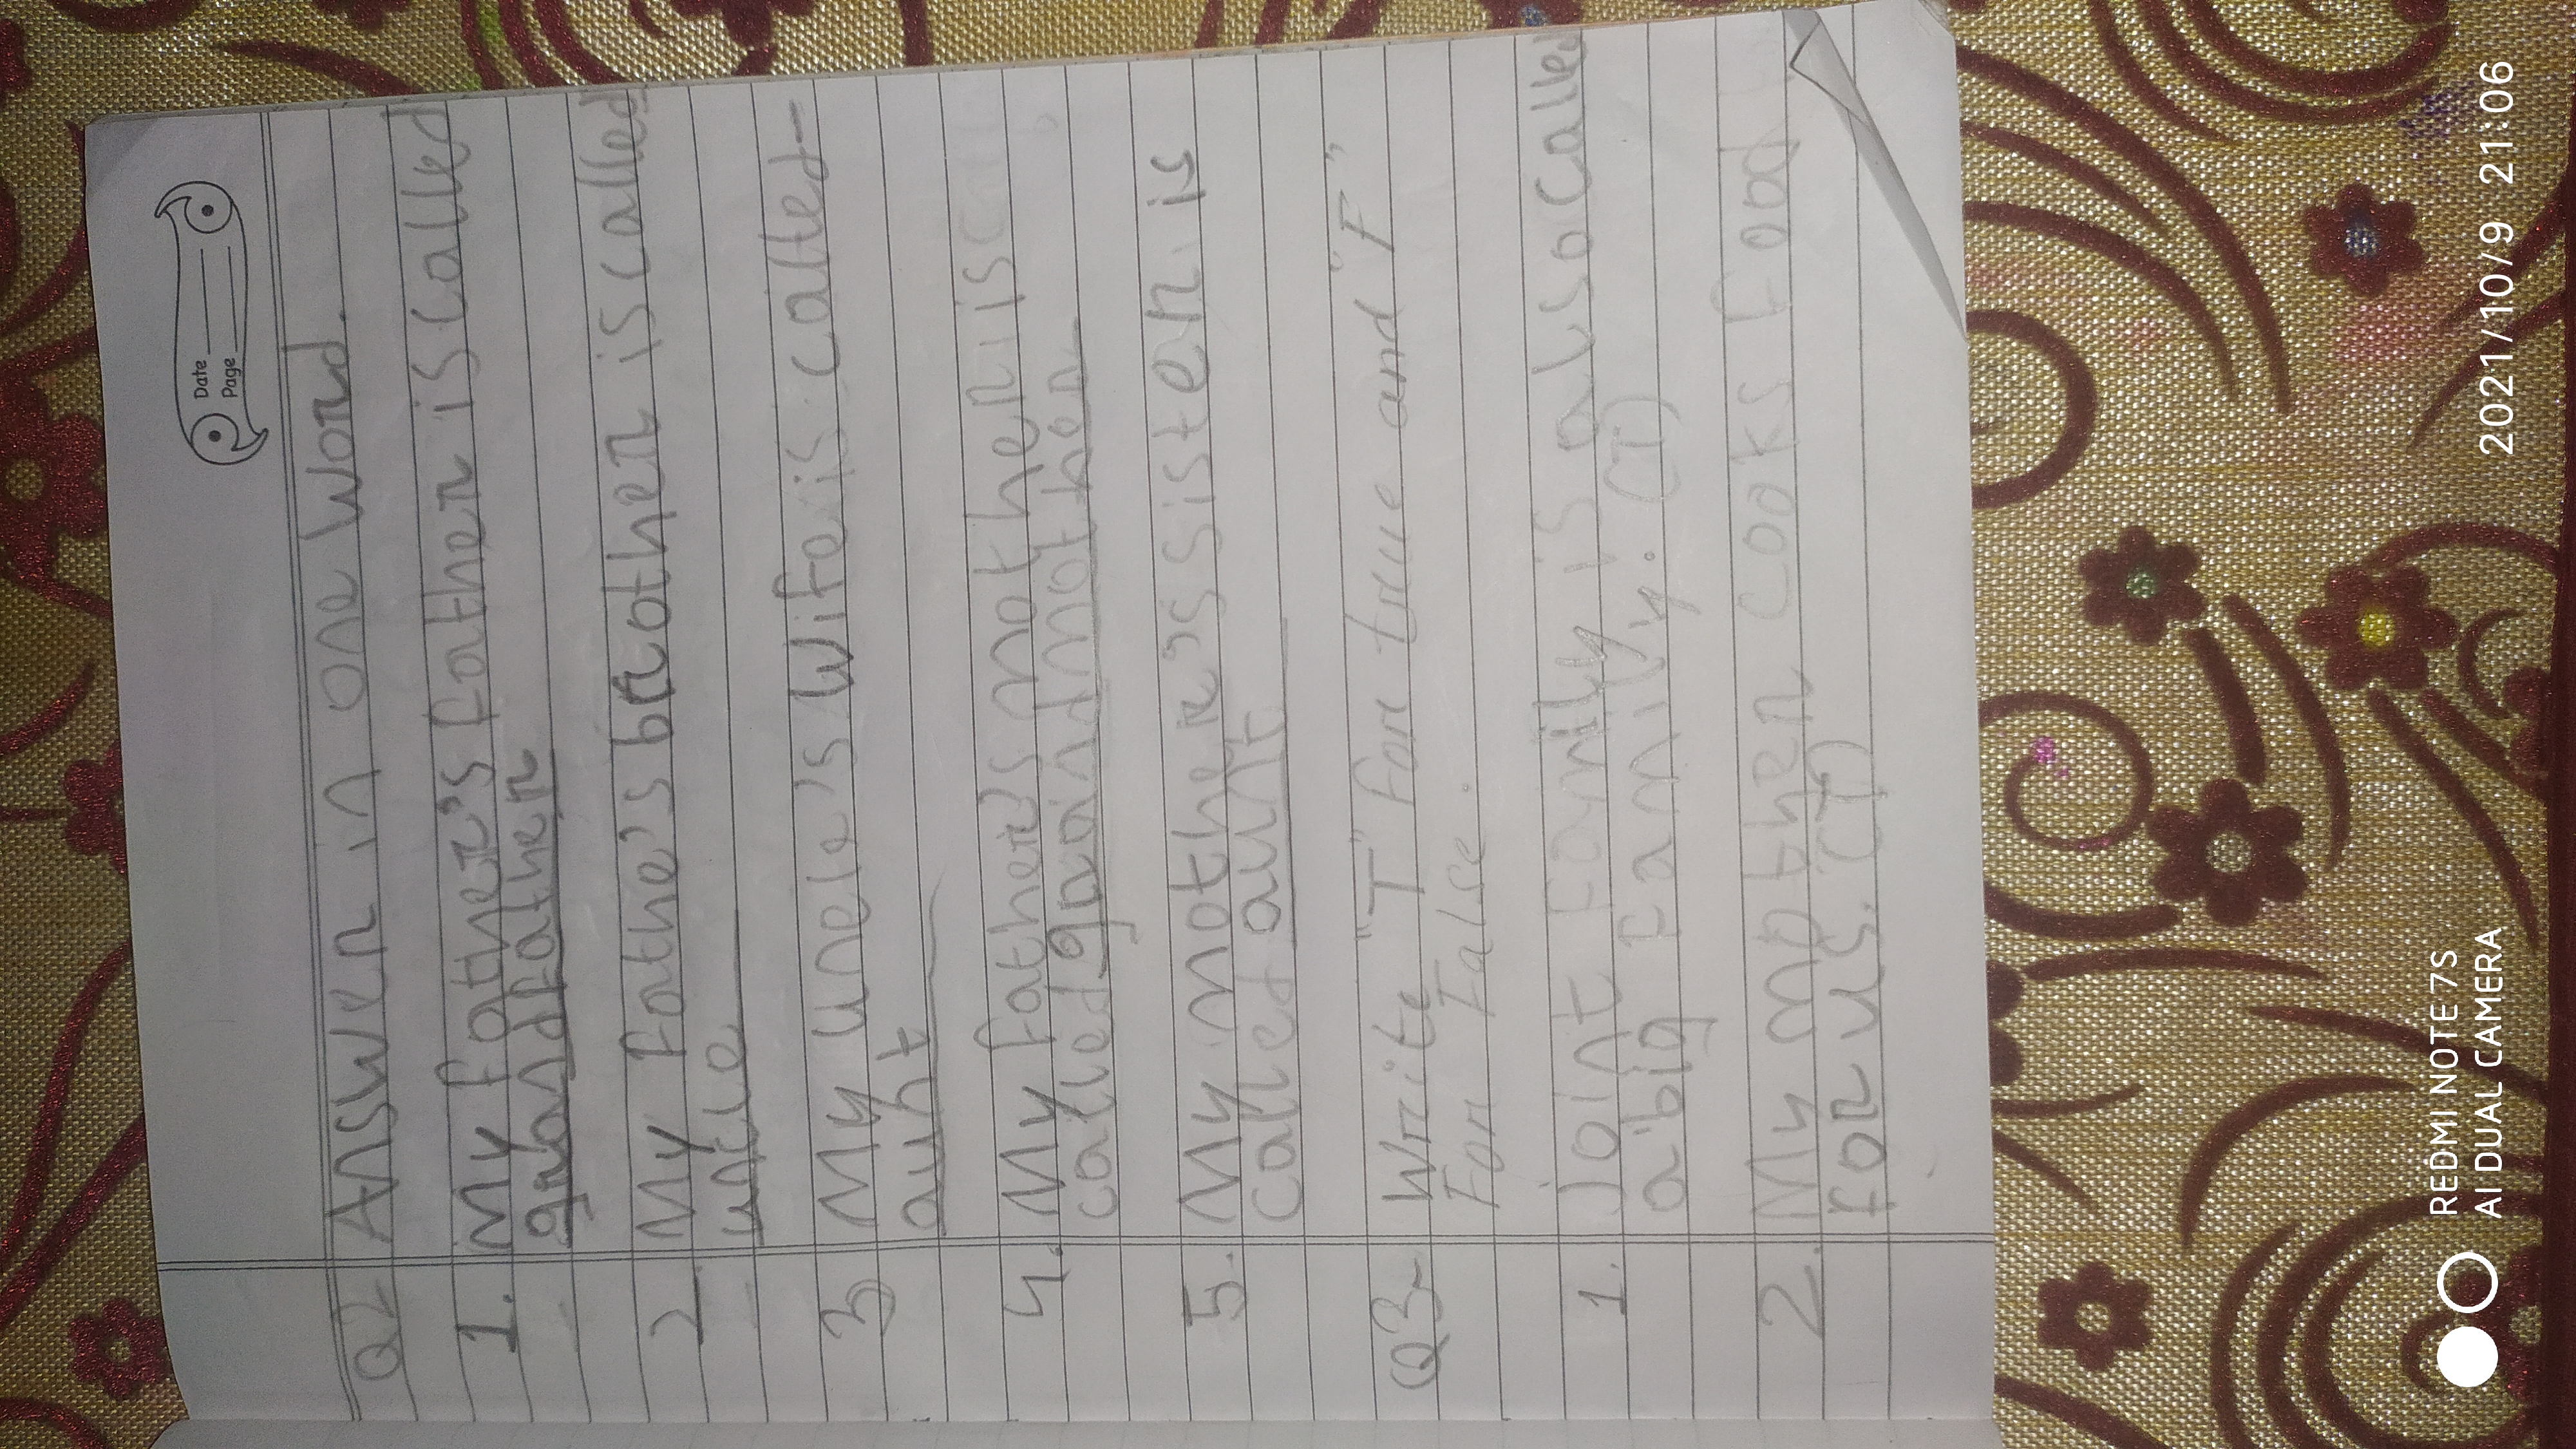 Date
Page
Q2 Answer in one word.
1. My father's father is called
grandfather
2. My fathe's brother is called
uncle
3 My uncle's wife is called-
aunt
4. My father's mother is call
called grandmother
5. My mother's sister is
Called aunt
Q3- Write "T" for true and "F"
For False.
1. Joint Family is also called
a big Family. (T)
2. My mother cooks food
for us. (T)
REDMI NOTE 7S
AI DUAL CAMERA
2021/10/9 21:06